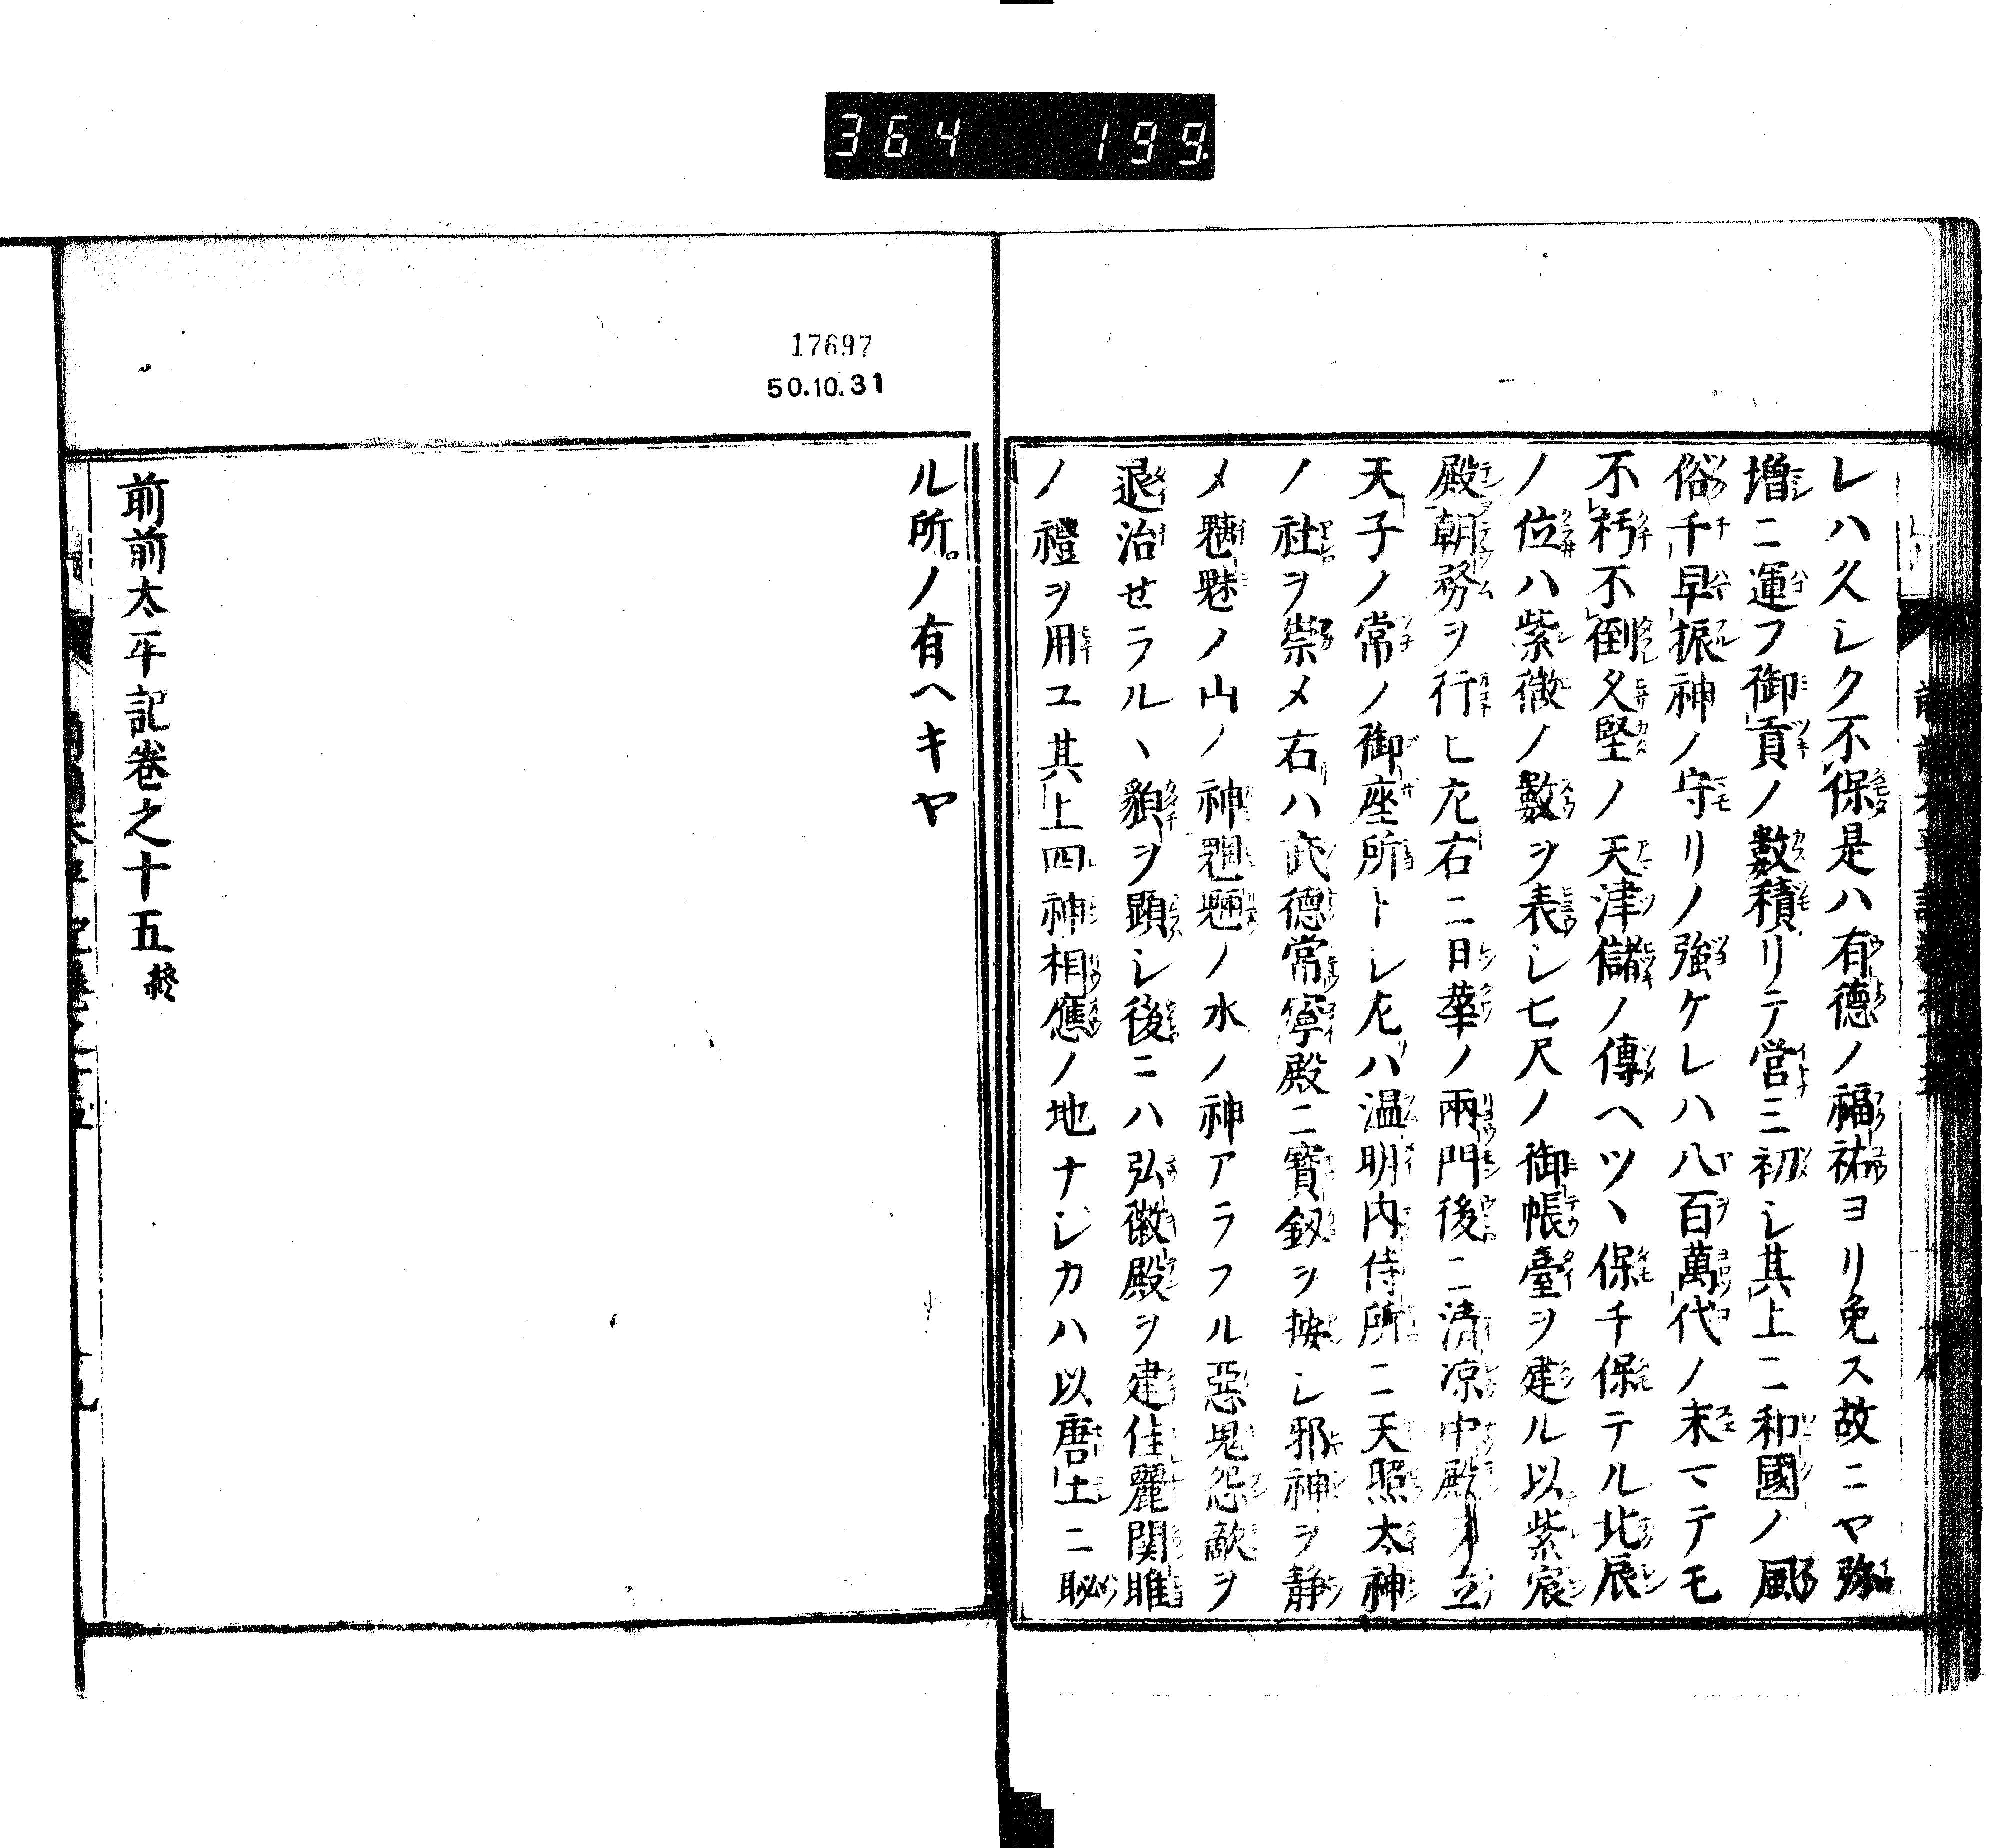 364 199.
レハ久シク不保是ハ有德ノ福祐ヨリ免ス故ニヤ弥
増ニ運フ御貢ノ數積リテ営ミ初シ其上ニ和國ノ風
俗千早振神ノ守リノ強ケレハ八百萬代ノ末マテモ
不朽不倒久堅ノ天津儲ノ傳ヘツヽ保千保テル北辰
ノ位ハ紫微ノ數ヲ表シ七尺ノ御帳臺ヲ建ル以紫宸
殿朝務ヲ行ヒ左右ニ日華ノ兩門後ニ清凉中殿 立
天子ノ常ノ御座所トシ左ハ温明内侍所ニ天照太神
ノ社ヲ崇メ右ハ武德常寧殿ニ寶釼ヲ按シ邪神ヲ静
メ魑魅ノ山ノ神魍魎ノ水ノ神アラフル惡鬼怨敵ヲ
退治せラルヽ貌ヲ顕シ後ニハ弘徽殿ヲ建佳麗関雎
ノ禮ヲ用ユ其上四神相應ノ地ナレカハ以唐土ニ恥
17697
50.10.31
ル所ノ有ヘキヤ
前前太平記卷之十五終